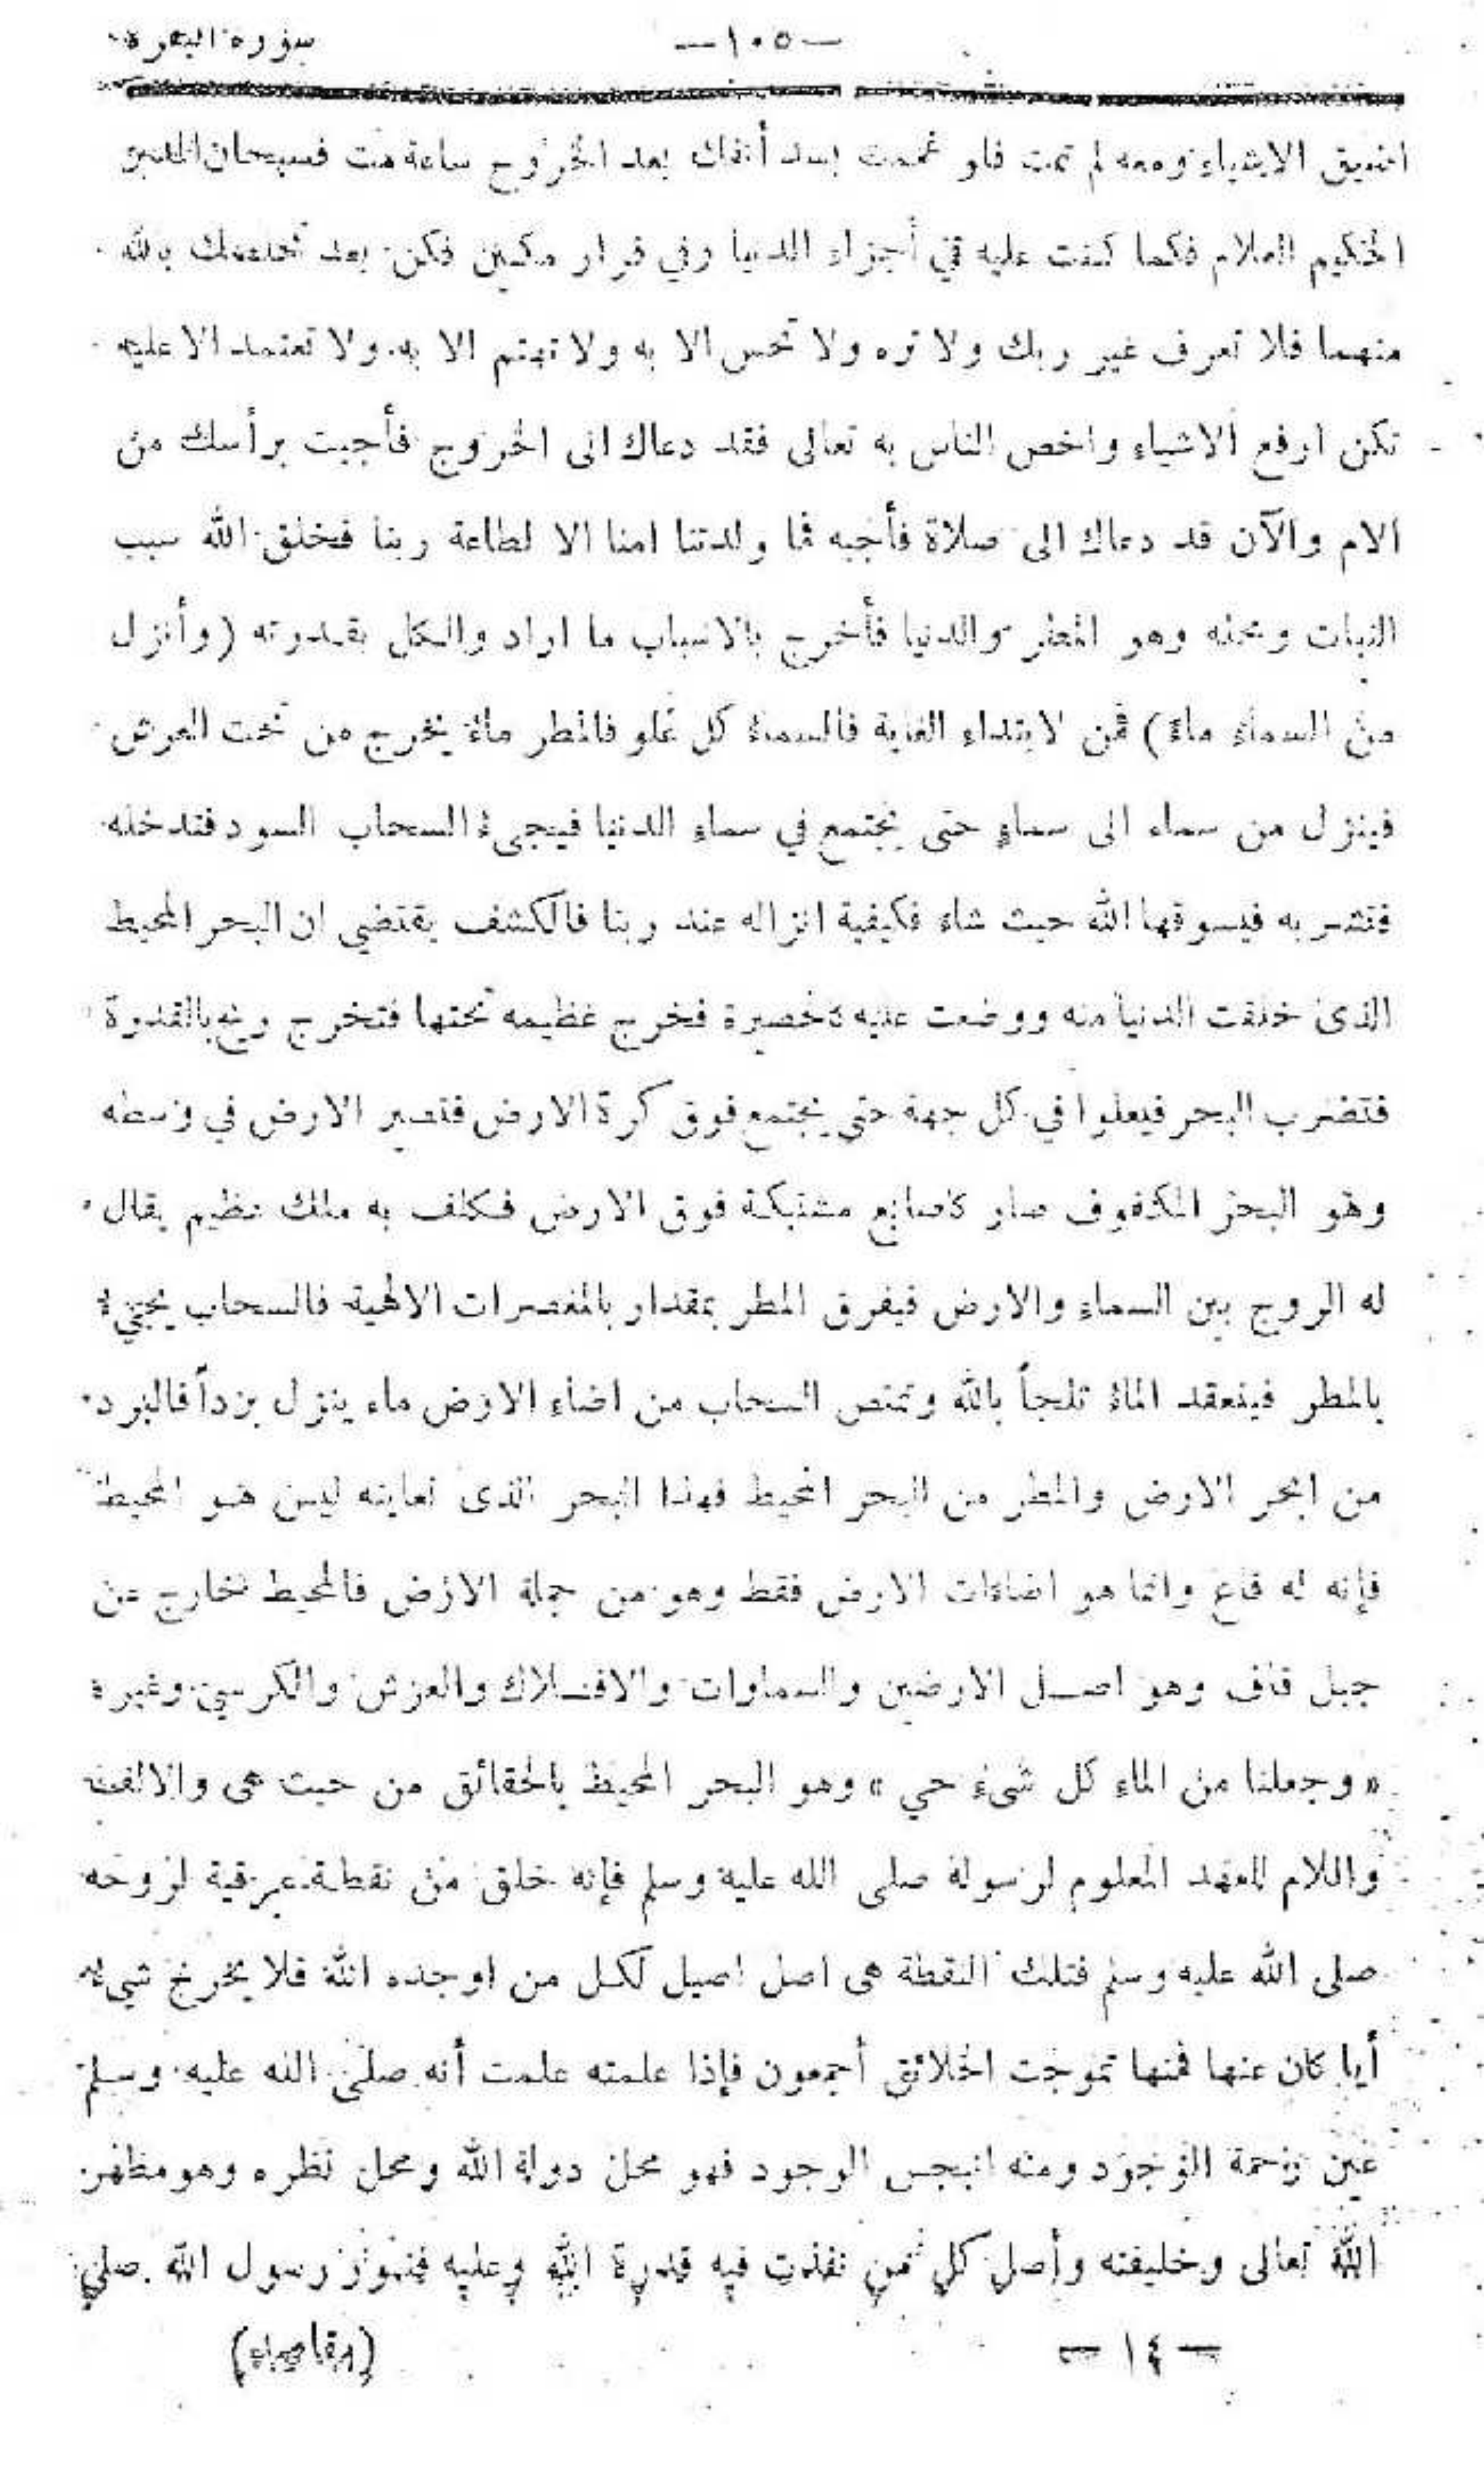 سورة البقرة
—١٠٥—
اضيق الاشياء ومعه لم تمت فلو غممت بسد أنفك بعد الخروج ساعة مت فسبحان المدبر
الحكيم العلام فكما كنت عليه في أجزاء الدنيا وفي قرار مكين فكن بعد بالله
منهما فلا تعرف غير ربك ولا تره ولا تحس الا به ولا تهتم الا به ولا تعتمد الا عليه
تكن ارفع الاشياء واخص الناس به تعالى فقد دعاك الى الخروج فأجبت برأسك من
الام والآن قد دعاك الى صلاة فأجبه فما ولدتنا امنا الا لطاعة ربنا فخلق الله سبب
النبات ومحله وهو المطر والدنيا فأخرج بالاسباب ما اراد والكل بقدرته (وأنزل
من السماء ماء) فمن لابتداء الغاية فالسماء كل علو فالمطر ماء يخرج من تحت العرش
فينزل من سماء الى سماء حتى يجتمع في سماء الدنيا فيجيء السحاب السود فتدخله
فتشربه فيسوقها الله حيث شاء فكيفية انزاله عند ربنا فالكشف يقتضي ان البحر المحيط
الذى خلقت الدنيا منه ووضعت عليه كحصيرة فخرج عظيمه تحتها فتخرج ريح بالقدرة
فتضرب البحر فيعلوا في كل جهة حتى يجتمع فوق كرة الارض فتصير الارض في وسطه
وهو البحر المكفوف صار كاصابع مشتبكة فوق الارض فكلف به ملك عظيم يقال
له الروح بين السماء والارض فيفرق المطر بمقدار بالمعصرات الالهية فالسحاب يجيء
بالمطر فينعقد الماء ثلجاً بالله وتمتص السحاب من اضاء الارض ماء ينزل برداً فالبرد
من ابحر الارض والمطر من البحر المحيط فهذا البحر الذى نعاينه ليس هو المحيط
فإنه له قاع وانما هو اضاءات الارض فقط وهو من جملة الارض فالمحيط خارج عن
جبل قاف وهو اصل الارضين والسماوات والافلاك والعرش والكرسي وغيره
« وجعلنا من الماء كل شيء حي » وهو البحر المحيط بالحقائق من حيث هى والالف
واللام للعهد المعلوم لرسوله صلى الله عليه وسلم فإنه خلق من نقطة عرقية لروحه
صلى الله عليه وسلم فتلك النقطة هى اصل اصيل لكل من اوجده الله فلا يخرج شيء
أيا كان عنها فمنها تموجت الخلائق أجمعون فإذا علمته علمت أنه صلى الله عليه وسلم
عين رحمة الوجود ومنه انبجس الوجود فهو محل دولة الله ومحل نظره وهو مظهر
الله تعالى وخليفته وأصل كل من نفذت فيه قدرة الله وعليه فنور رسول الله صلى
— ١٤ —